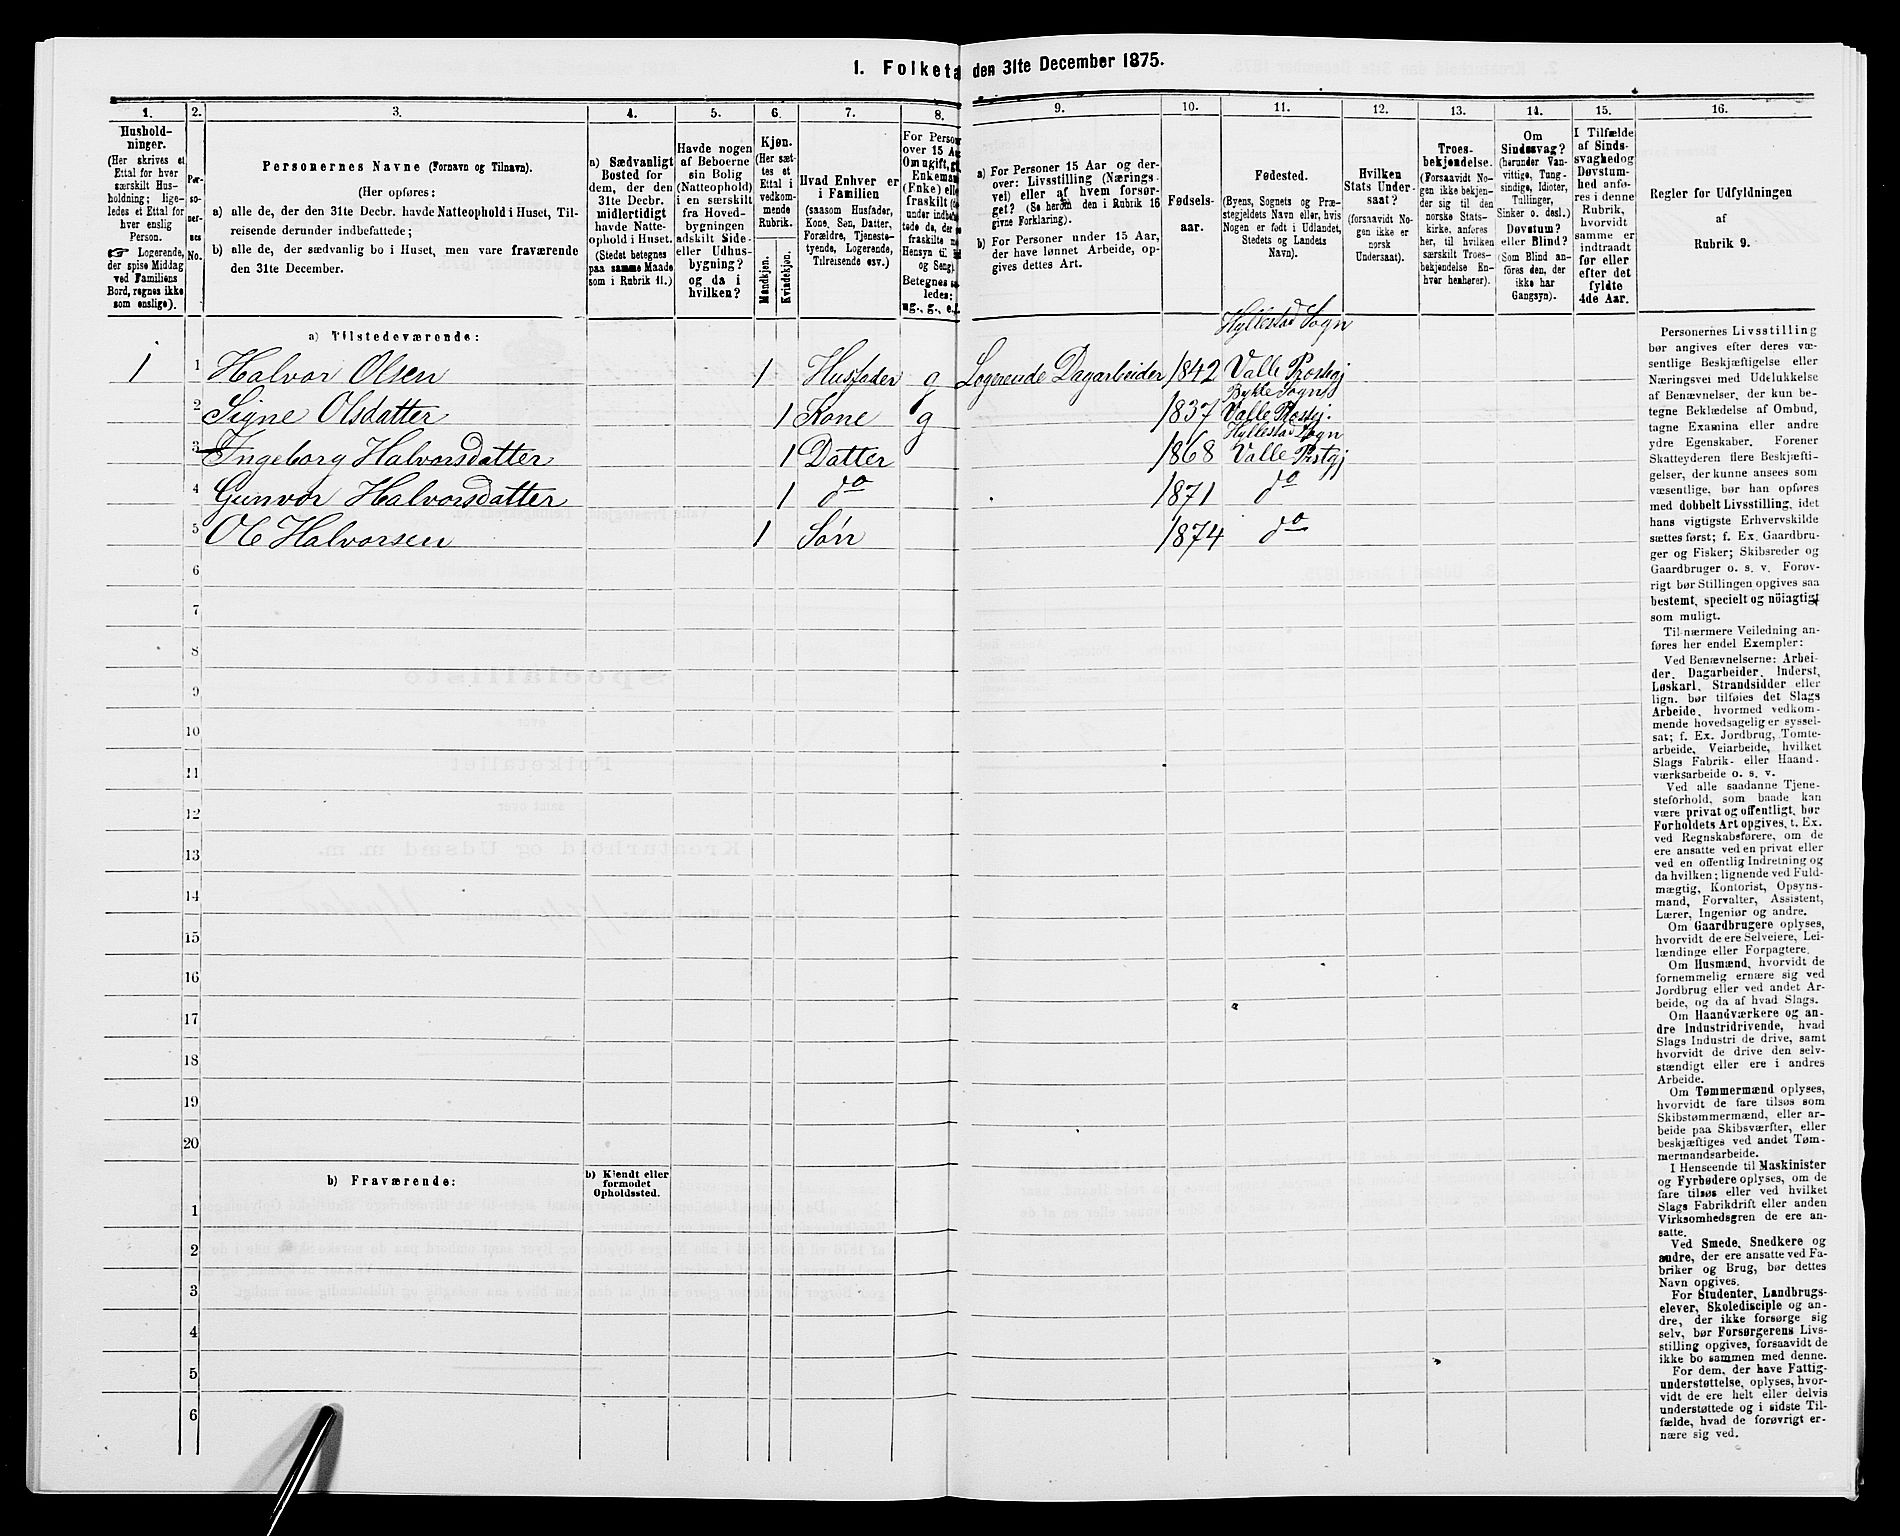 1. Folketa den 31te December 1875.
1. 2. 3. 4. 5. 6. 7. 8. 9. 10. 11. 12. 13. 14. 15. 16.
Hushold-
ninger.
(Her skrives et
Ettal for hver
særskilt Hus-
holdning; lige-
ledes et Ettal for
hver enslig
Person.
☞ Logerende,
der spise Middag
ved Familiens
Bord, regnes ikke
som enslige).
Per-
so-
ner-
nes
No.
Personernes Navne (Fornavn og Tilnavn).
(Her opføres:
a) alle de, der den 31te Decbr. havde Natteophold i Huset, Til-
reisende derunder indbefattede;
b) alle de, der sædvanlig bo i Huset, men vare fraværende
den 31te December.
a) Sædvanligt
Bosted for
dem, der den
31te Decbr.
midlertidigt
havde Natte-
ophold i Huset.
(Stedet betegnes
paa samme Maade
som i Rubrik 11.)
Havde nogen
af Beboerne
sin Bolig
(Natteophold)
i en særskilt
fra Hoved-
bygningen
adskilt Side-
eller Udhus-
bygning?
og da i
hvilken?
Kjøn.
(Her sæt-
tes et
Ettal i
vedkom-
mende
Rubrik.
Mandkjøn.
Kvindekjøn.
Hvad Enhver er
i Familien
(saasom Husfader,
Kone, Søn, Datter,
Forældre, Tjeneste-
tyende, Logerende,
Tilreisende osv.)
For Person
over 15 Aa
Om ugift, g
Enkema
(Fnke) ell
fraskilt
under indbe
tede de, der
fraskilte
Hensyn til
og Seng).
Betegnes s
ledes:
ug., g., e.,
a) For Personer 15 Aar og der-
over: Livsstilling (Nærings-
vei) eller af hvem forsør-
get? (Se herom den i Rubrik 16
givne Forklaring).
b) For Personer under 15 Aar,
der have lønnet Arbeide, op-
gives dettes Art.
Fødsels-
aar.
Fødested.
(Byens, Sognets og Præ-
stegjeldets Navn eller, hvis
Nogen er født i Udlandet,
Stedets og Landets
Navn).
Hvilken
Stats Under-
saat?
(forsaavidt No-
gen ikke er
norsk
Undersaat).
Troes-
bekjendelse.
(Forsaavidt No-
gen ikke bekjen-
der sig til den
norske Stats-
kirke, anføres
her, til hvilken
særskilt Troes-
bekjendelse En-
hver henhører).
Om
Sindssvag?
(herunder Van-
vittige, Tung-
sindige, Idioter,
Tullinger,
Sinker o. desl.)
Døvstum?
eller Blind?
(Som Blind an-
føres den, der
ikke har
Gangsyn).
I Tilfælde
af Sinds-
svaghed og
Døvstum-
hed anfø-
res i denne
Rubrik,
hvorvidt
samme er
indtraadt
før eller
efter det
fyldte
4de Aar.
Regler for Udfyldningen
af
Rubrik 9.
a) Tilstedeværende:
Hyllestad Sogn
1 1 Halvor Olsen 1 Husfader g Logerende Dagarbeider 1842 Valle Prestgj
Bykle Sogn
2 Signe Olsdatter 1 Kone g 1837 Valle Prestgj.
Hyllestad Sogn
3 Ingeborg Halvorsdatter 1 Datter 1868 Valle Prstgj
4 Gunvor Halvorsdatter 1 do 1871 do
5 Ole Halvorsen 1 Søn 1874 do
6
7
8
9
10
11
12
13
14
15
16
17
18
19
20
b) Fraværende:
b) Kjendt eller
formodet
Opholdssted.
1
2
3
4
5
6
Personernes Livsstilling
bør angives efter deres væ-
sentlige Beskjæftigelse eller
Næringsvei med Udelukkelse
af Benævnelser, der kun be-
tegne Beklædelse af Ombud,
tagne Examina eller andre
ydre Egenskaber. Forener
Skatteyderen flere Beskjæfti-
gelser, der kunne ansees som
væsentlige, bør han opføres
med dobbelt Livsstilling, idet
hans vigtigste Erhvervskilde
sættes først; f. Ex. Gaardbru-
ger og Fisker; Skibsreder og
Gaardbruger o. s. v. Forøv-
rigt bør Stillingen opgives saa
bestemt, specielt og nöiagtigt
som muligt.
Til nærmere Veiledning an-
føres her endel Exempler:
Ved Benævnelserne: Arbei-
der, Dagarbeider, Inderst,
Løskarl, Strandsidder eller
lign. bør tilføies det Slags
Arbeide, hvormed vedkom-
mende hovedsagelig er syssel-
sat; f. Ex. Jordbrug, Tomte-
arbeide, Veiarbeide, hvilket
Slags Fabrik- eller Haand-
værksarbeide o. s. v.
Ved alle saadanne Tjene-
steforhold, som baade kan
være privat og offentligt, bør
Forholdets Art opgives, t. Ex.
ved Regnskabsførere, om de
ere ansatte ved en privat eller
ved en offentlig Indretning og
da hvilken; lignende ved Fuld-
mægtig, Kontorist, Opsyns-
mand, Forvalter, Assistent,
Lærer, Ingeniør og andre.
Om Gaardbrugere oplyses,
hvorvidt de ere Selveiere, Lei-
lændinge eller Forpagtere.
Om Husmænd, hvorvidt de
fornemmelig ernære sig ved
Jordbrug eller ved andet Ar-
beide, og da af hvad Slags.
Om Haandværkere og an-
dre Industridrivende, hvad
Slags Industri de drive, samt
hvorvidt de drive den selv-
stændigt eller ere i andres
Arbeide.
Om Tømmermænd oplyses,
hvorvidt de fare tilsøs som
Skibstømmermænd, eller ar-
beide paa Skibsværfter, eller
beskjæftiges ved andet Tøm-
mermandsarbeide.
I Henseende til Maskinister
og Fyrbødere oplyses, om de
fare tilsøs eller ved hvilket
Slags Fabrikdrift eller anden
Virksomhedsgren de ere an-
satte.
Ved Smede, Snedkere og
andre, der ere ansatte ved Fa-
briker og Brug, bør dettes
Navn opgives.
For Studenter, Landbrugs-
elever, Skoledisciple og an-
dre, der ikke forsørge sig
selv, bør Forsørgerens Livs-
stilling opgives, forsaavidt de
ikke bo sammen med denne.
For dem, der have Fattig-
understøttelse, oplyses, hvor-
vidt de ere helt eller delvis
understøttede og i sidste Til-
fælde, hvad de forøvrigt er-
nære sig ved.